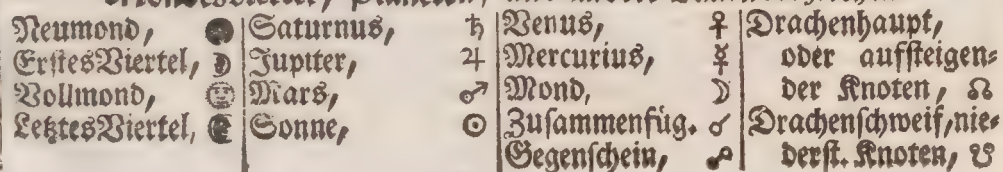 Neumond, ●
ErstesViertel, ☽
Vollmond, 🌝
LetztesViertel, ☾
Saturnus, ♄
Jupiter, ♃
Mars, ♂
Sonne, ☉
Venus, ♀
Mercurius, ☿
Mond, ☽
Zusammenfüg. ☌
Gegenschein, ☍
Drachenhaupt,
oder aufsteigen-
der Knoten, ☊
Drachenschweif, nie-
derst. Knoten, ☋